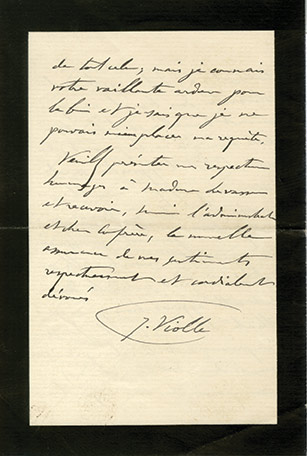 de tout cela; mais je connais
votre vaillante ardeur pour
le bien et je sais que je ne
pouvais mieux placer ma requête.
Veuillez présenter mes respectueux
hommages à Madame
et recevoir, l'administrateur
et cher Confrère, la nouvelle
assurance de mes sentiments
respectueusement et cordialement
dévoués
J. Violle